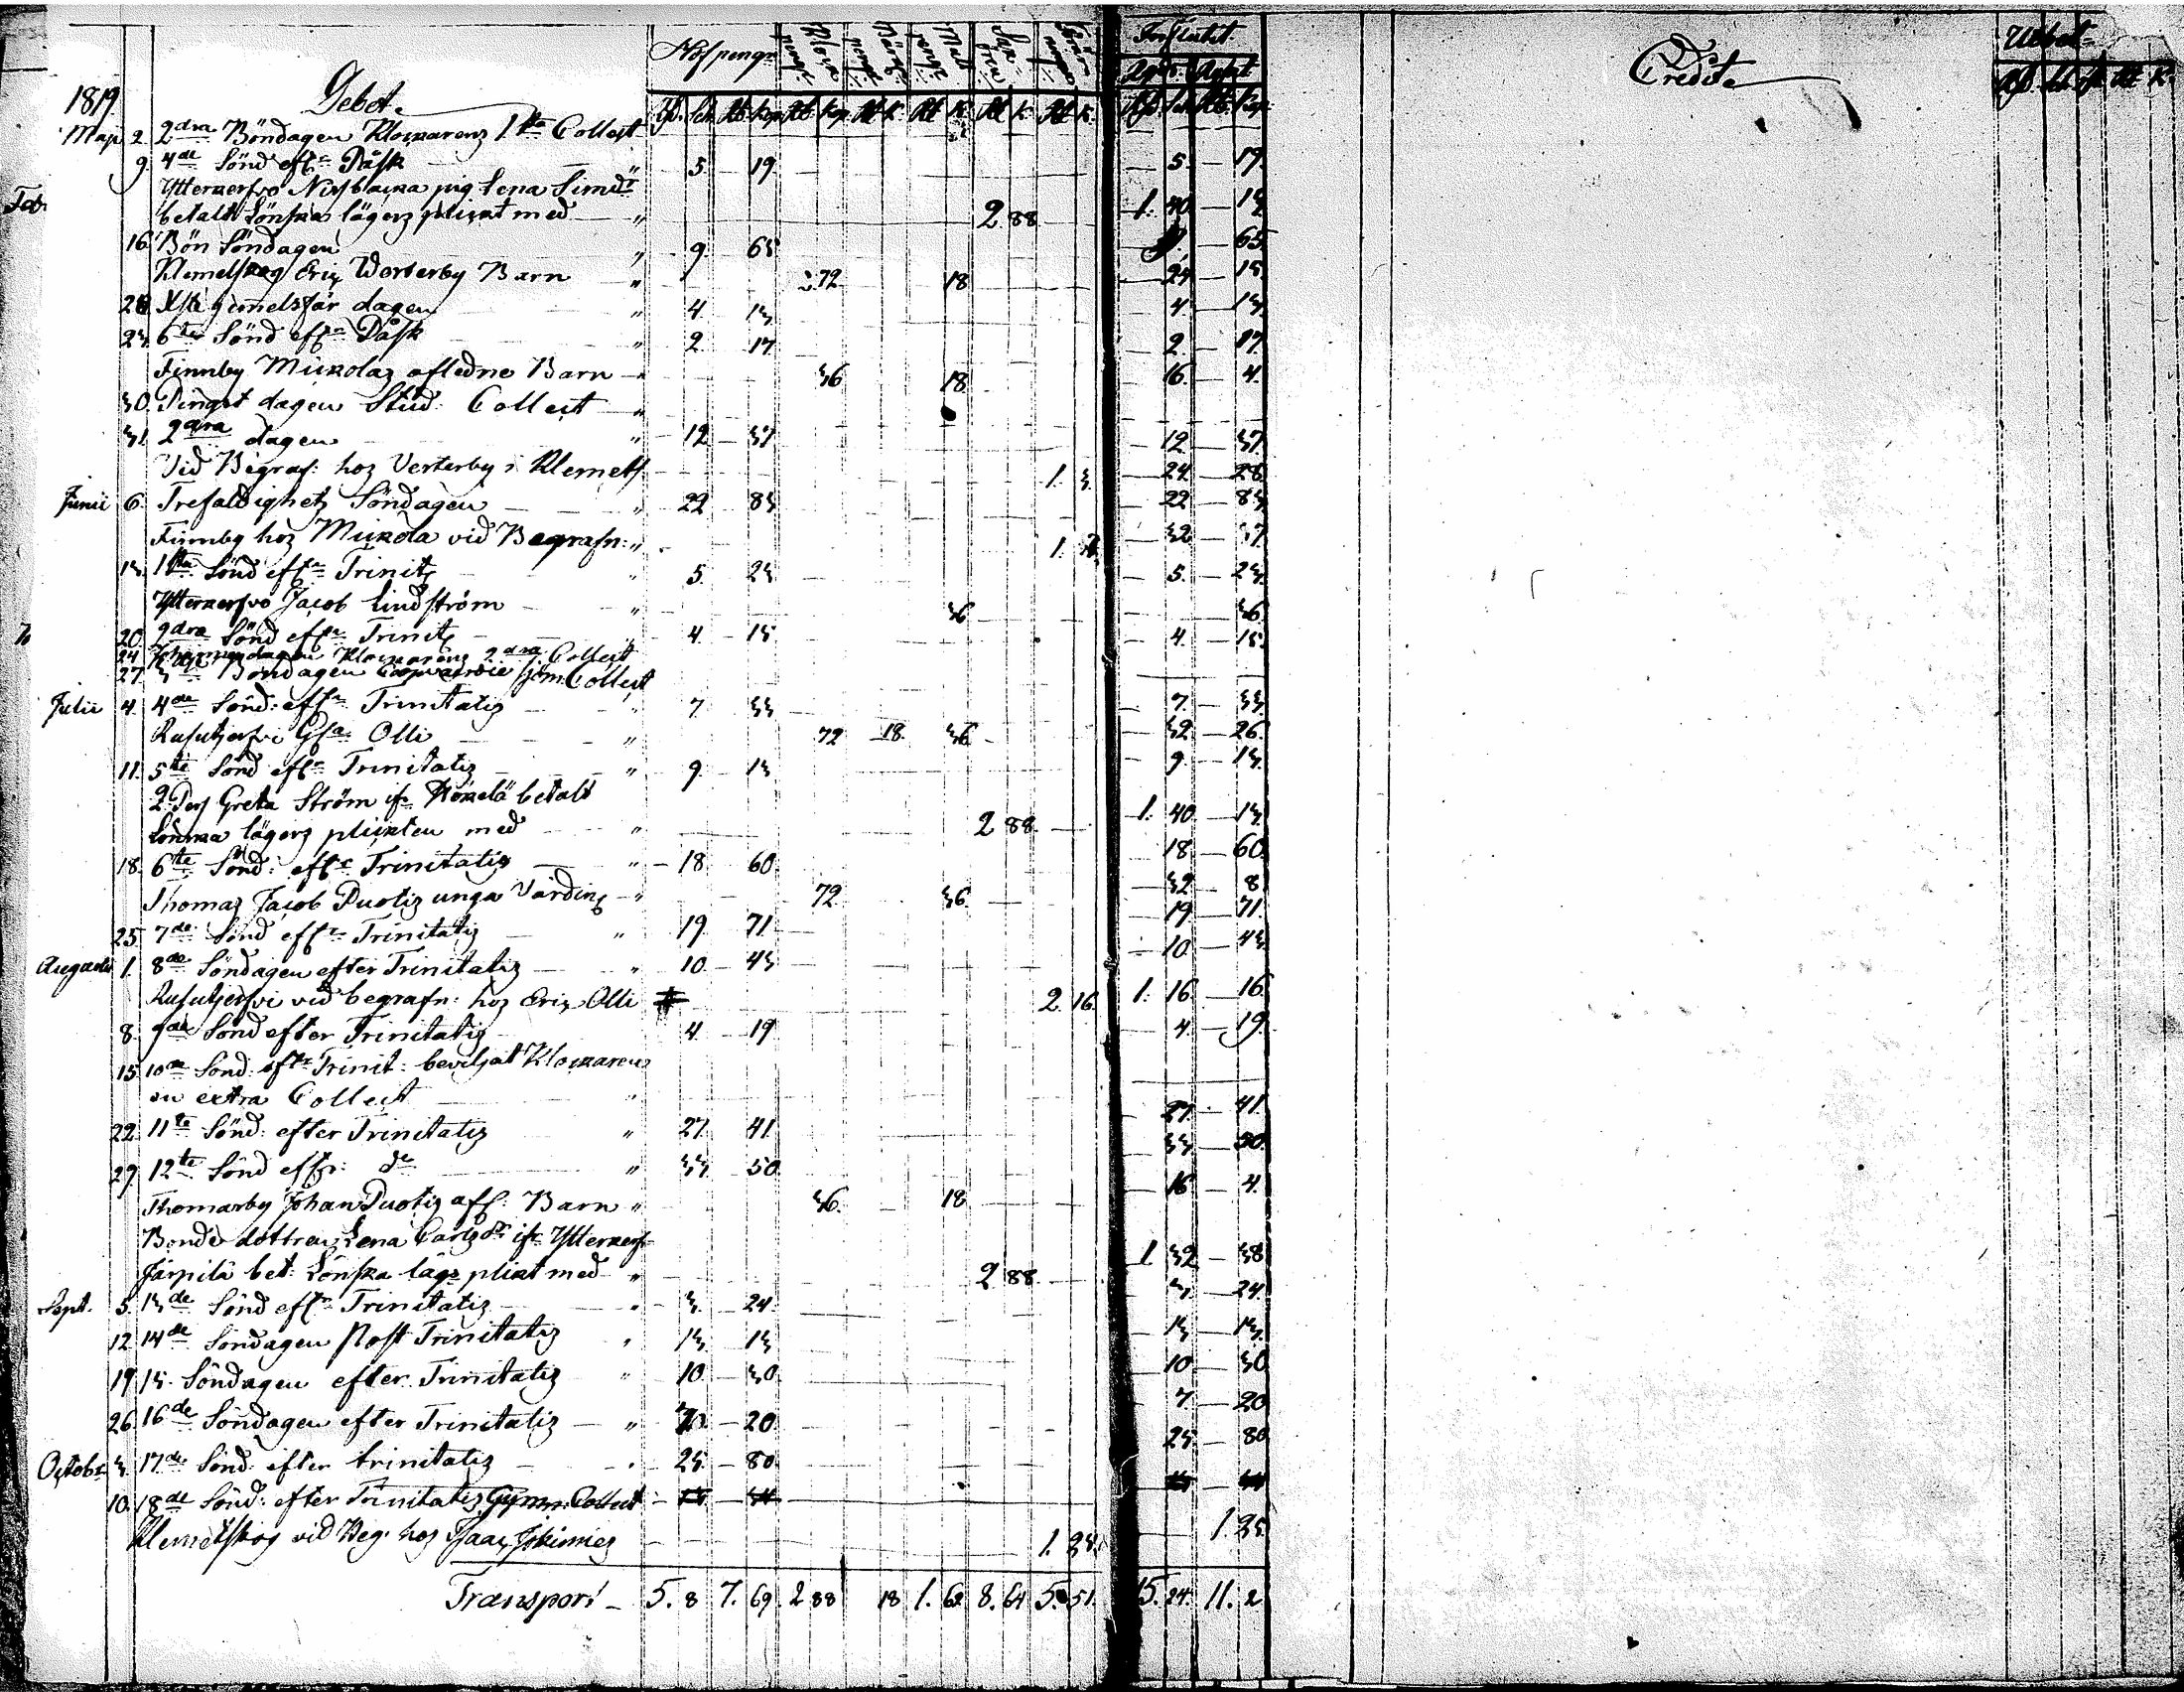 Håfpengr Klockpengr Bårpengr Mattpengr Sakören Gravpengr Influtit Credit Uebet
1819 Debet
Rd. Sch. Rb. Kop. Rb. Kop. Rb K. Rb K. Rb K. Rb K. Rd. Sch. Rb. Kop.
Maji 2. 2dra Böndagen Klockarens 1sta Collect
9. 4de Sönd efr Påsk " 5 19 5. 19.
Ytterkersvö Nissbacka pig Lena Simdr
betalt Lönska lägers plickt med " 2 88 1. 40 13
16. Bön Söndagen " 9. 63 9. 63
Klemetskog Eric Westerby Barn " 72 18 24 15
20 Xsti himelsfärdagen " 4 13 4 13
23. 6te Sönd efr Påsk " 2. 17 2. 17
Finnby Mickolas aflidne Barn " 36 18 16. 4.
30. Pingst dagen Stud: Collect "
31. 2dra dagen " 12 37 12 37
Vid Begraf: hos Vesterby i Klemets. 1. 3. 24 28
Junii 6. Trefaldighets Söndagen " 22 83 22 83
Finnby hos Mickola vid Begrafn: " 1. 32 37
13. 1sta Sönd efr Trinit " 5. 23 5. 23.
Ytterkersvö Jacob Lindström " 36 36
20. 2dra Sönd efr Trinit " 4. 15 4. 15
24 Johannendagen Klockarens 2dra Collect
27. 3de Böndagen Sjöm: Collect
Julii 4. 4de Sönd: efr Trinitatis " 7. 33 7. 33
Rusutjerfvi Gla Olli " 72 18. 36 32 26.
11. 5te Sönd efr Trinitatis " 9. 13 9. 13.
Greta Ström ifr betalt
Lönska lägers plickten med " 2 88. 1. 40. 13
18. 6te Sönd: efr Trinitatis " 18. 60. 18. 60.
Thomas Jacob Puotis unga Värding " 72. 36. 32 8
25. 7de Sönd efr Trinitatis " 19. 71. 19 71.
Augusti 1. 8de Söndagen efter Trinitatis " 10. 43 10. 43
Rusutjerfvi vid begrafn: hos Eric Olli 2. 16. 1. 16. 16.
8. 9de Sönd efter Trinitatis 4. 19. 4. 19.
15. 10de Sönd: eftr Trinit: beviljat Klockaren
en extra Collect "
22. 11te Sönd: efter Trinitatis " 27. 41. 27. 41.
29 12te Sönd effr: do " 33 50. 33 50.
Thomarby Johan Puotis afl: Barn " 36. 18 16 4.
Bonde dottren Lena Carlsdr ifr Ytterkers
Järpilä bet: Lönska lägs plikt med " 2 88. 1. 32 38
Sept. 5. 13de Sönd efr Trinitatis " 3. 24. 3. 24.
12. 14de Söndagen Post Trinitatis " 13 13 13 13.
19. 15. Söndagen efter Trinitatis " 10. 30. 10 30
26. 16de Söndagen efter Trinitatis " 7. 20. 7. 20
Octobr 3. 17de Sönd: efter trinitatis " 25. 80. 25 80
10. 18de Sönd: efter Trinitatis Gymn: Collect
Klemetskog vid Beg: hos Isaac Jokimies 1. 25. 1 25.
Transport 5. 8 7. 69. 2 88 18 1. 62 8. 64 5. 51. 15. 24. 11. 2